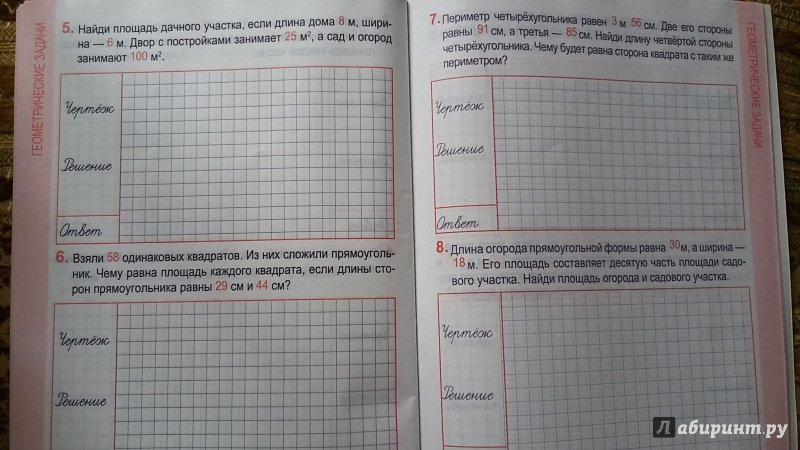 ГЕОМЕТРИЧЕСКИЕ ЗАДАЧИ
5. Найди площадь дачного участка, если длина дома 8 м, шири-
на — 6 м. Двор с постройками занимает 25 м², а сад и огород
занимают 100 м².
Чертёж
Решение
Ответ
6. Взяли 58 одинаковых квадратов. Из них сложили прямоуголь-
ник. Чему равна площадь каждого квадрата, если длины сто-
рон прямоугольника равны 29 см и 44 см?
Чертёж
Решение
7. Периметр четырёхугольника равен 3 м 56 см. Две его стороны
равны 91 см, а третья — 85 см. Найди длину четвёртой стороны
четырёхугольника. Чему будет равна сторона квадрата с таким же
периметром?
Чертёж
Решение
Ответ
8. Длина огорода прямоугольной формы равна 30 м, а ширина —
18 м. Его площадь составляет десятую часть площади садо-
вого участка. Найди площадь огорода и садового участка.
Чертёж
Решение
ГЕОМЕТРИЧЕСКИЕ ЗАДАЧИ
Лабиринт.ру